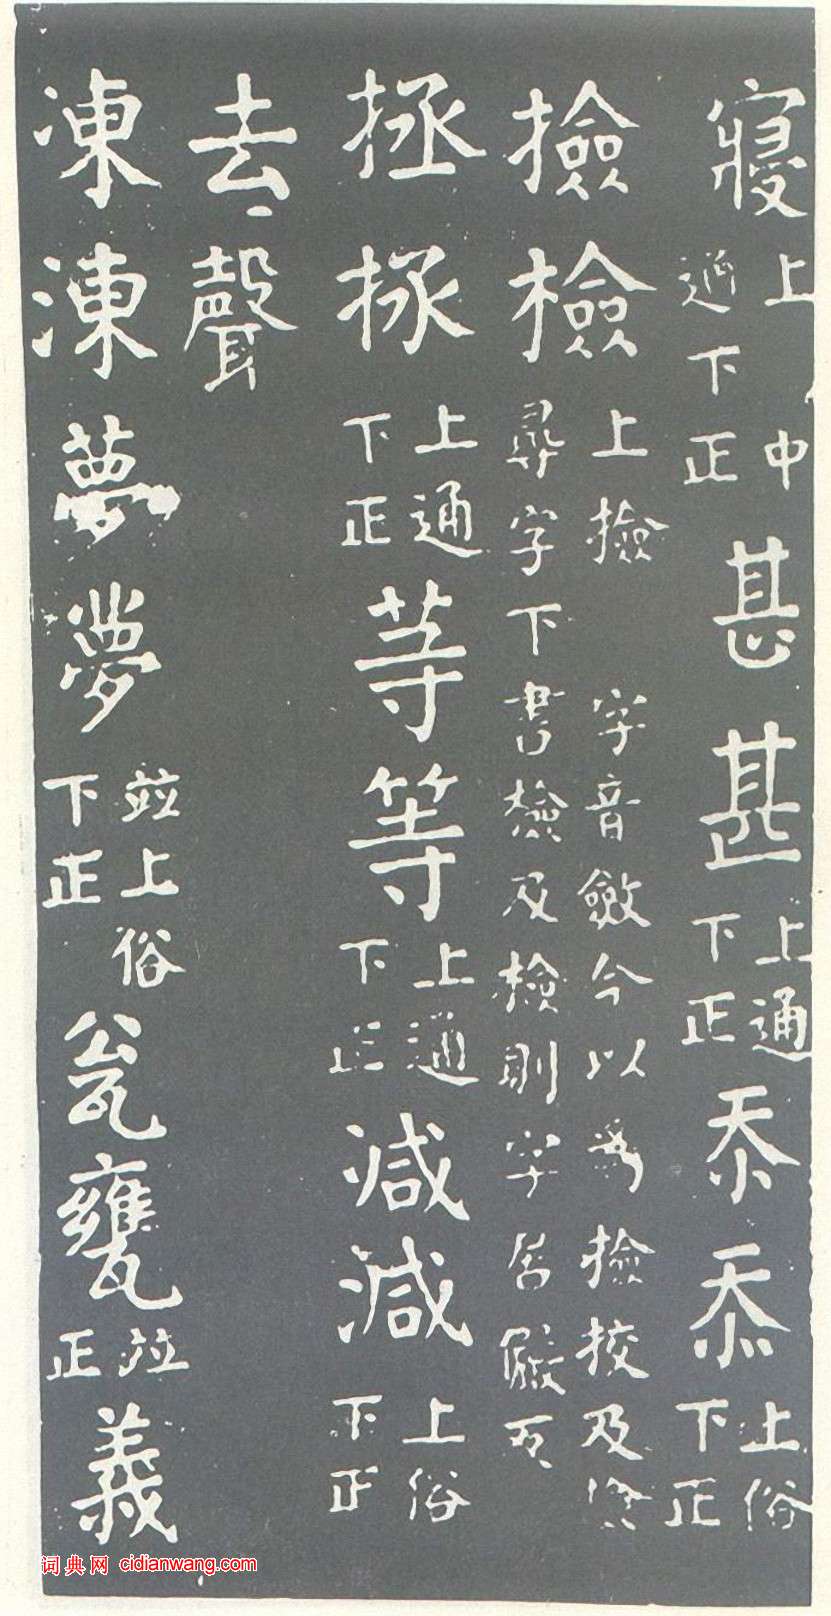 寢上中通下正甚甚上通下正忝忝上俗下正
撿檢上撿字音斂今以為撿挍及
尋字下書檢及檢則字居儼反
拯拯上通下正䓁等上通下正减減上俗下正
去聲
凍涷夢夢並上俗下正瓮甕並正義
词典网 cidianwang.com